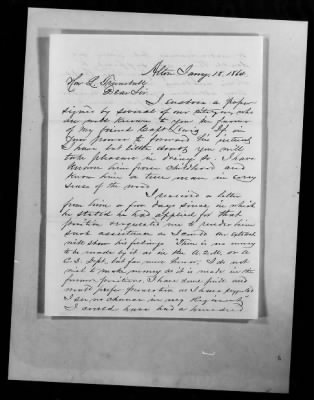 Alton Jany. 18. 1864
Hon L. Trumbull
Dear Sir.
I enclose a paper
signed by several of our citizens who
are well known to you in favor
of my friend Capt Lewis. If in
your power to forward his interest
I have but little doubt you will
take pleasure in doing so. I have
known him from childhood and
know him a true man in every
sense of the word.
I received a letter
from him a few days since in which
he stated he had applied for that
position & requested me to render him
such assistance as I could. An extract
will show his feelings. "There is no money
to be made by it as in the A.Q.M. or A.
C.S. Dept. but far more honor. I do not
wish to make money as it is made in the
former positions. I have some pride and
would prefer Promotion as I have
I see no chance in my Regiment"
I could have had a hundred